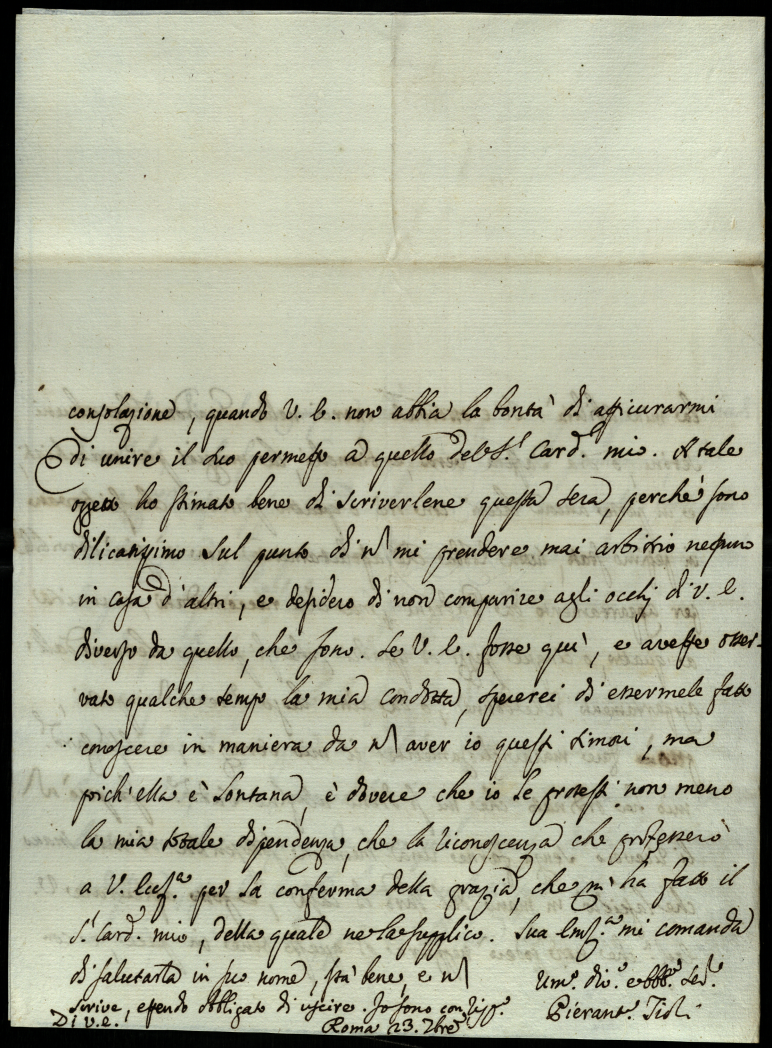 consolazione, quando V. E. non abbia la bontà di assicurarmi
di unire il suo permesso a quello del S.r Card.e mio. A tale
oggetto ho stimato bene di scriverlene questa sera, perchè sono
dilicatissimo sul punto di n mi prendere mai arbitrio nessuno
in casa d'altri, e desidero di non comparire agli occhj di V. E.
diverso da quello, che sono. Se V. E. fosse quì, e avesse osser-
vato qualche tempo la mia condotta, spererei di essermele fatto
conoscere in maniera da n aver io questi timori, ma
poich'ella è lontana, è dovere che io le protesti non meno
la mia totale dipendenza, che la riconoscenza che professerò
a V. Ecc.a per la conferma della grazia, che mi ha fatto il
S.r Card.e mio, della quale ne la supplico. Sua Em.a mi comanda
di salutarla in suo nome, stà bene, e n
scrive, essendo obbligato di uscire. Io sono con
Di V. E.
Roma 23. 7bre
Um.o div.o e obb.o ser.e
Pierant.o Tioli